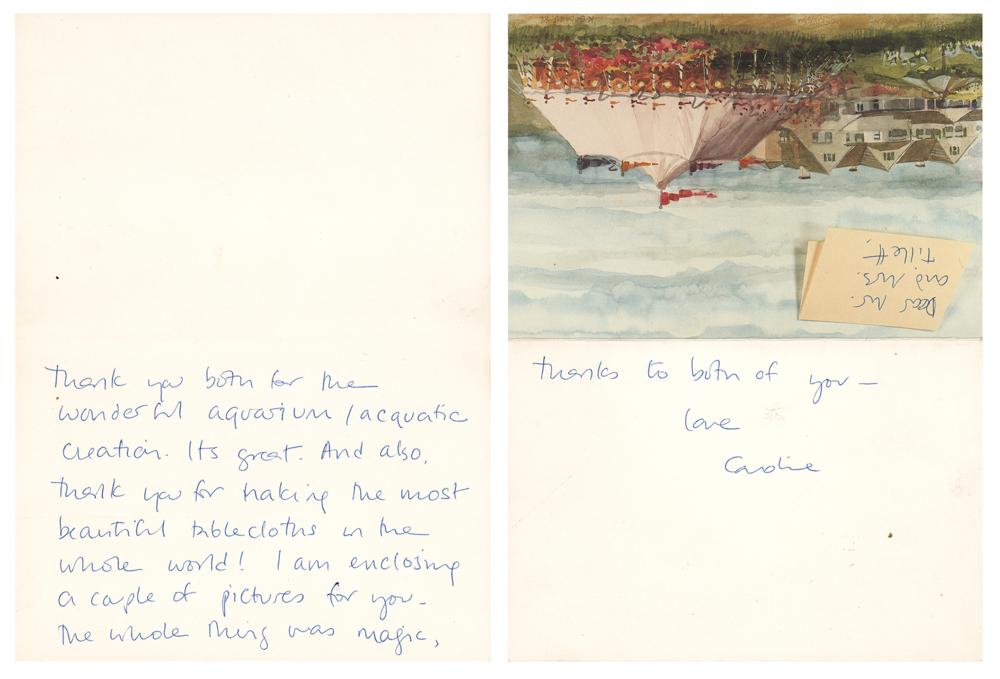 Thank you both for the
wonderful aquarium / acquatic
creation. Its great. And also,
thank you for making the most
beautiful tablecloths in the
whole world! I am enclosing
a couple of pictures for you–
The whole thing was magic,
Dear Mr.
and Mrs.
Tillett,
thanks to both of you —
love
Caroline